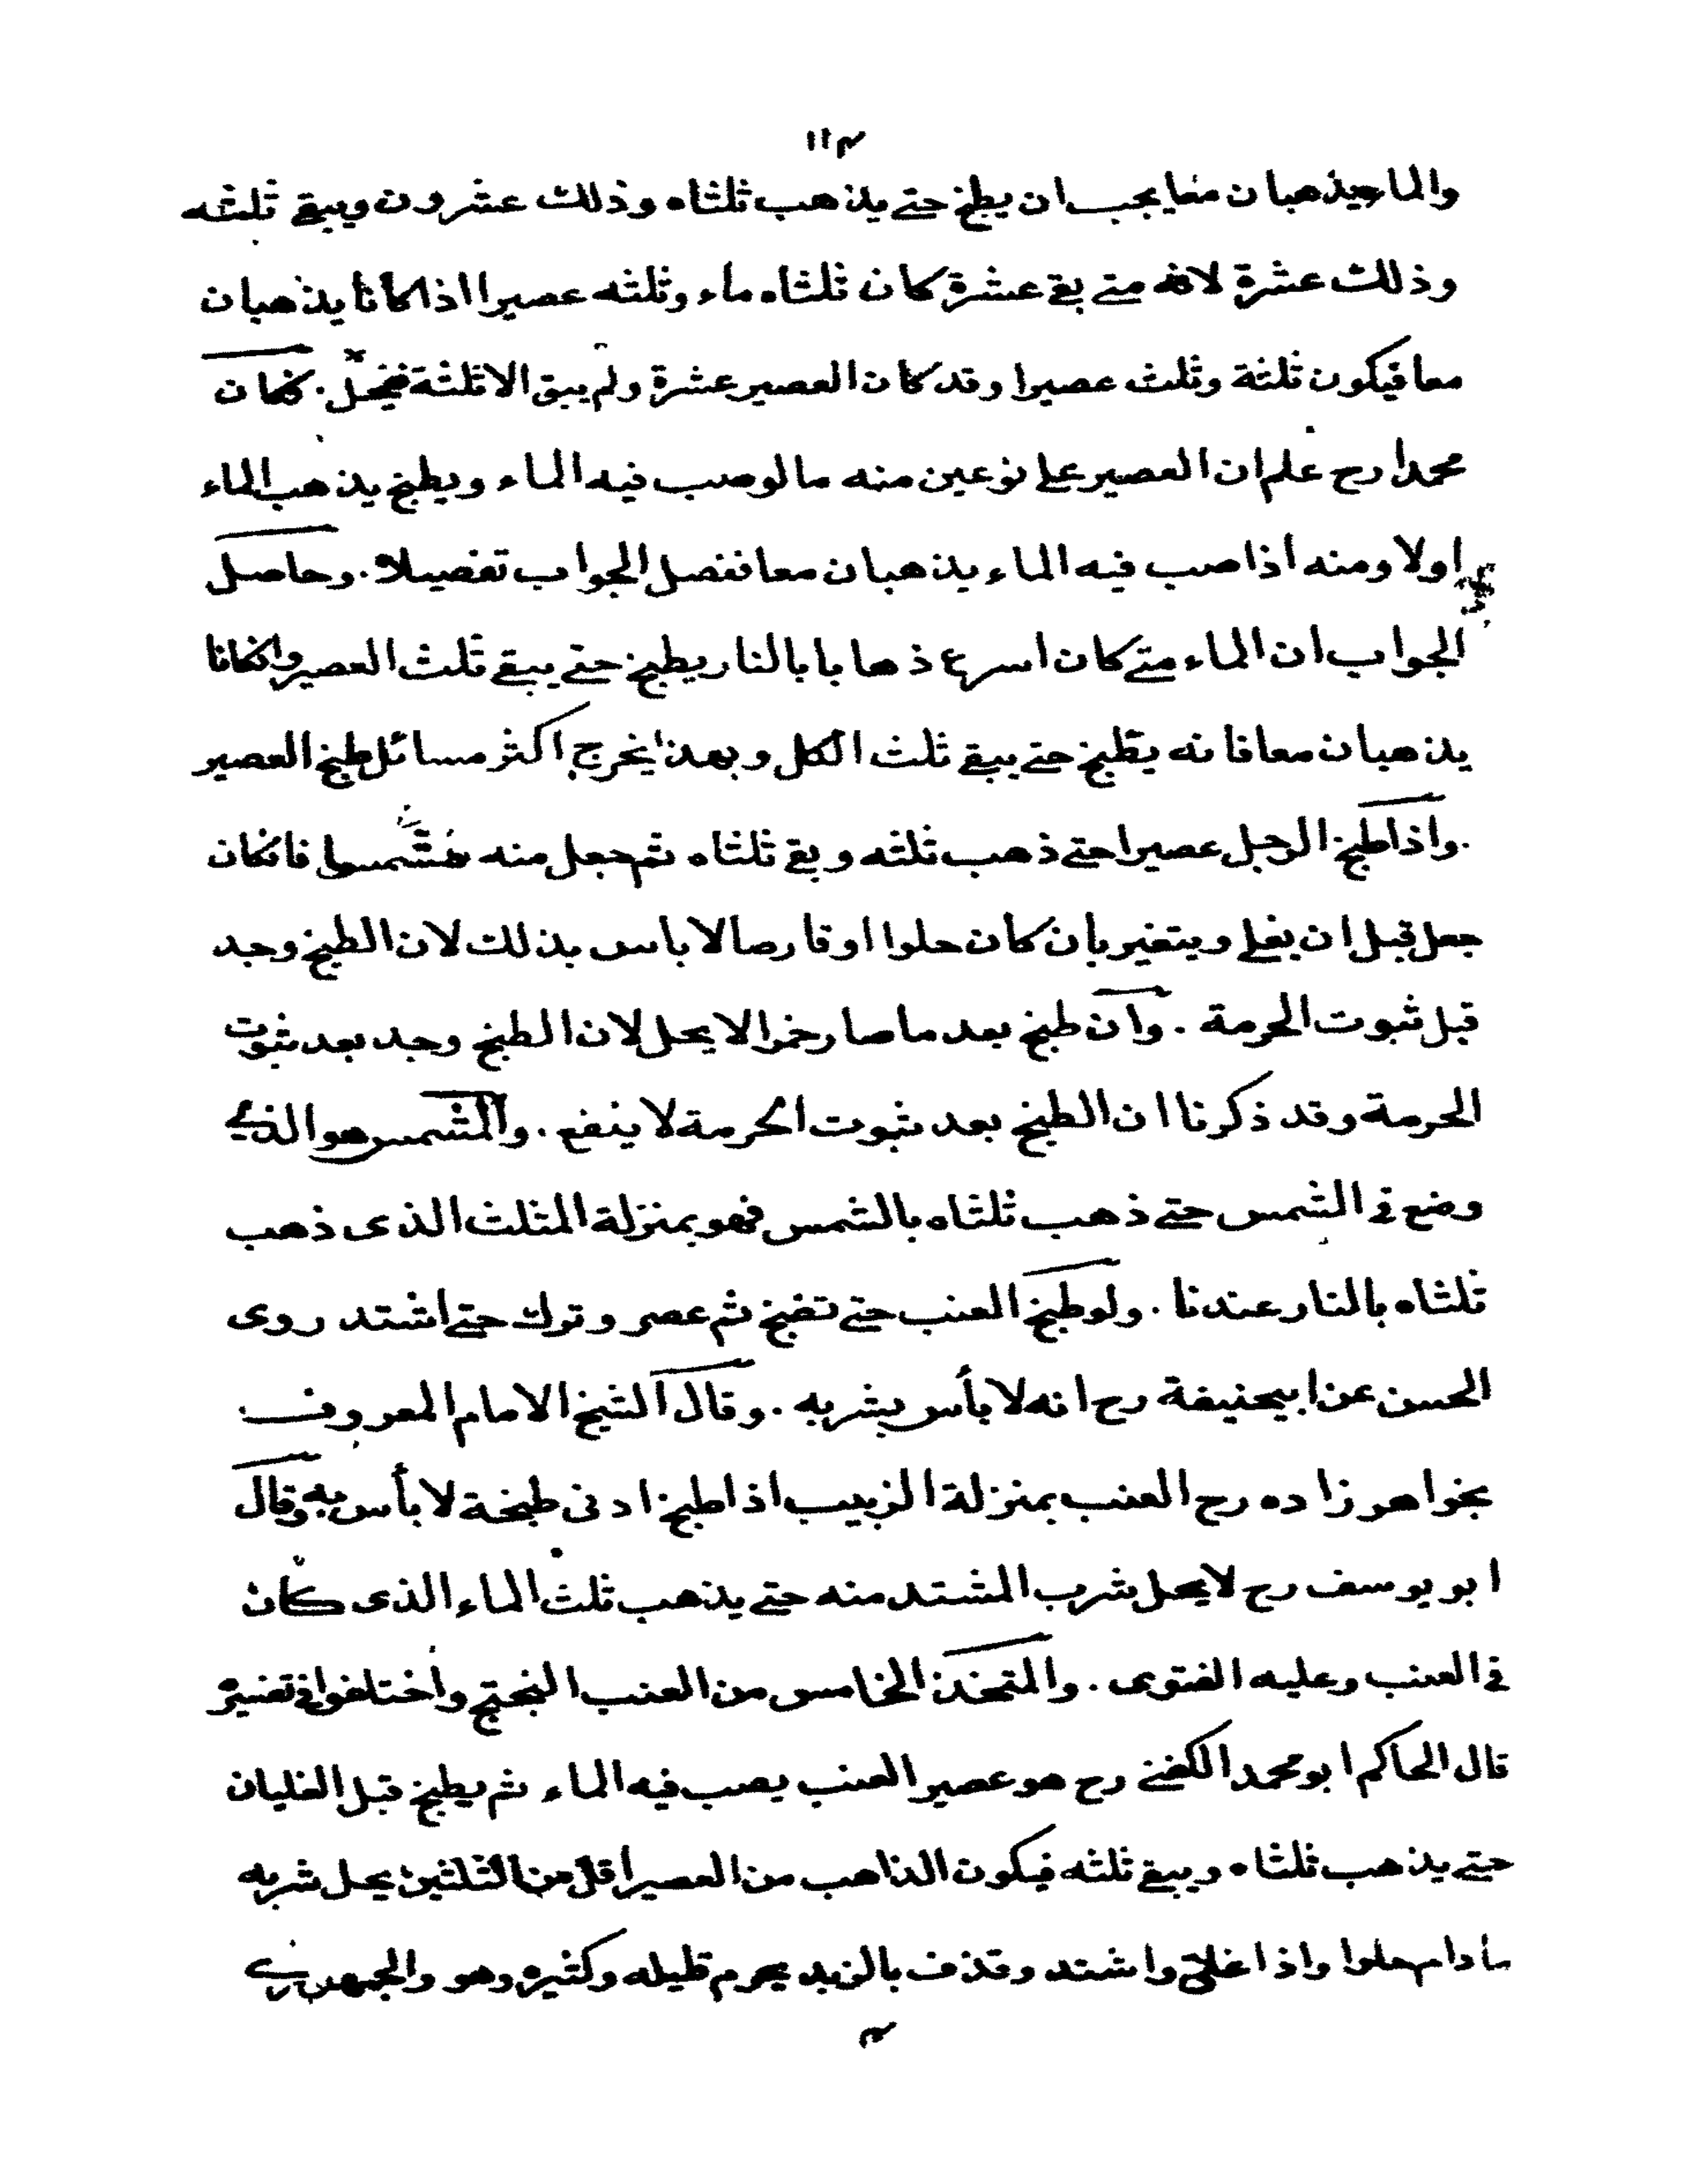 ١١٣
والماء يذهبان معا يجب ان يطبخ حتى يذهب ثلثاه وذلك عشرون ويبقى ثلثه
وذلك عشرة لانه متى بقى عشرة كان ثلثاه ماء وثلثه عصيرا اذا كانا يذهبان
معا فيكون ثلثة وثلث عصيرا وقد كان العصير عشرة ولم يبق الا ثلثة فيحل. فكان
محمدا رح علم ان العصير على نوعين منه ما لو صب فيه الماء ويطبخ يذهب الماء
اولا ومنه اذا صب فيه الماء يذهبان معا ففصل الجواب تفصيلا. وحاصل
الجواب ان الماء متى كان اسرع ذهابا بالنار يطبخ حتى يبقى ثلث العصير وانكانا
يذهبان معا فانه يطبخ حتى يبقى ثلث الكل وبهذا يخرج اكثر مسائل طبخ العصير
. واذا طبخ الرجل عصيرا حتى ذهب ثلثه وبقى ثلثاه ثم جعل منه مشمسا فانكان
جعل قبل ان يغلى ويتغير بان كان حلوا او قارصا لا باس بذلك لان الطبخ وجد
قبل ثبوت الحرمة . وان طبخ بعد ما صار خمرا لا يحل لان الطبخ وجد بعد ثبوت
الحرمة وقد ذكرنا ان الطبخ بعد ثبوت الحرمة لا ينفع . والمشمس هو الذى
وضع فى الشمس حتى ذهب ثلثاه بالشمس فهو بمنزلة المثلث الذى ذهب
ثلثاه بالنار عندنا . ولو طبخ العنب حتى تضبخ ثم عصر وترك حتى اشتد روى
الحسن عن ابيحنيفة رح انه لا بأس بشربه . وقال الشيخ الامام المعروف
بخواهر زاده رح العنب بمنزلة الزبيب اذا طبخ ادنى طبخة لا بأس به وقال
ابو يوسف رح لا يحل شرب المشتد منه حتى يذهب ثلث الماء الذى كان
فى العنب وعليه الفتوى . والمتخذ الخامس من العنب البختج واختلفوا فى تفسيره
قال الحاكم ابو محمد الكفنى رح هو عصير العنب يصب فيه الماء ثم يطبخ قبل الغليان
حتى يذهب ثلثاه ويبقى ثلثه فيكون الذاهب من العصير اقل من الثلثين يحل شربه
ما دام حلوا واذا غلى واشتد وقذف بالزبد يحرم قليله وكثيره وهو والجمهورى